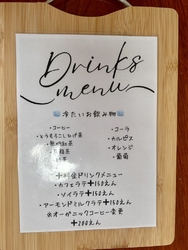 Drinks
menu
冷たいお飲み物
・コーヒー
・とうもろこしひげ茶
・無糖紅茶
・コーラ
・カルピス
・オレンジ
・葡萄
＋料金ドリンクメニュー
・カフェラテ＋150えん
・ソイラテ＋150えん
・アーモンドミルクラテ＋150えん
※オーガニックコーヒー変更
＋200えん